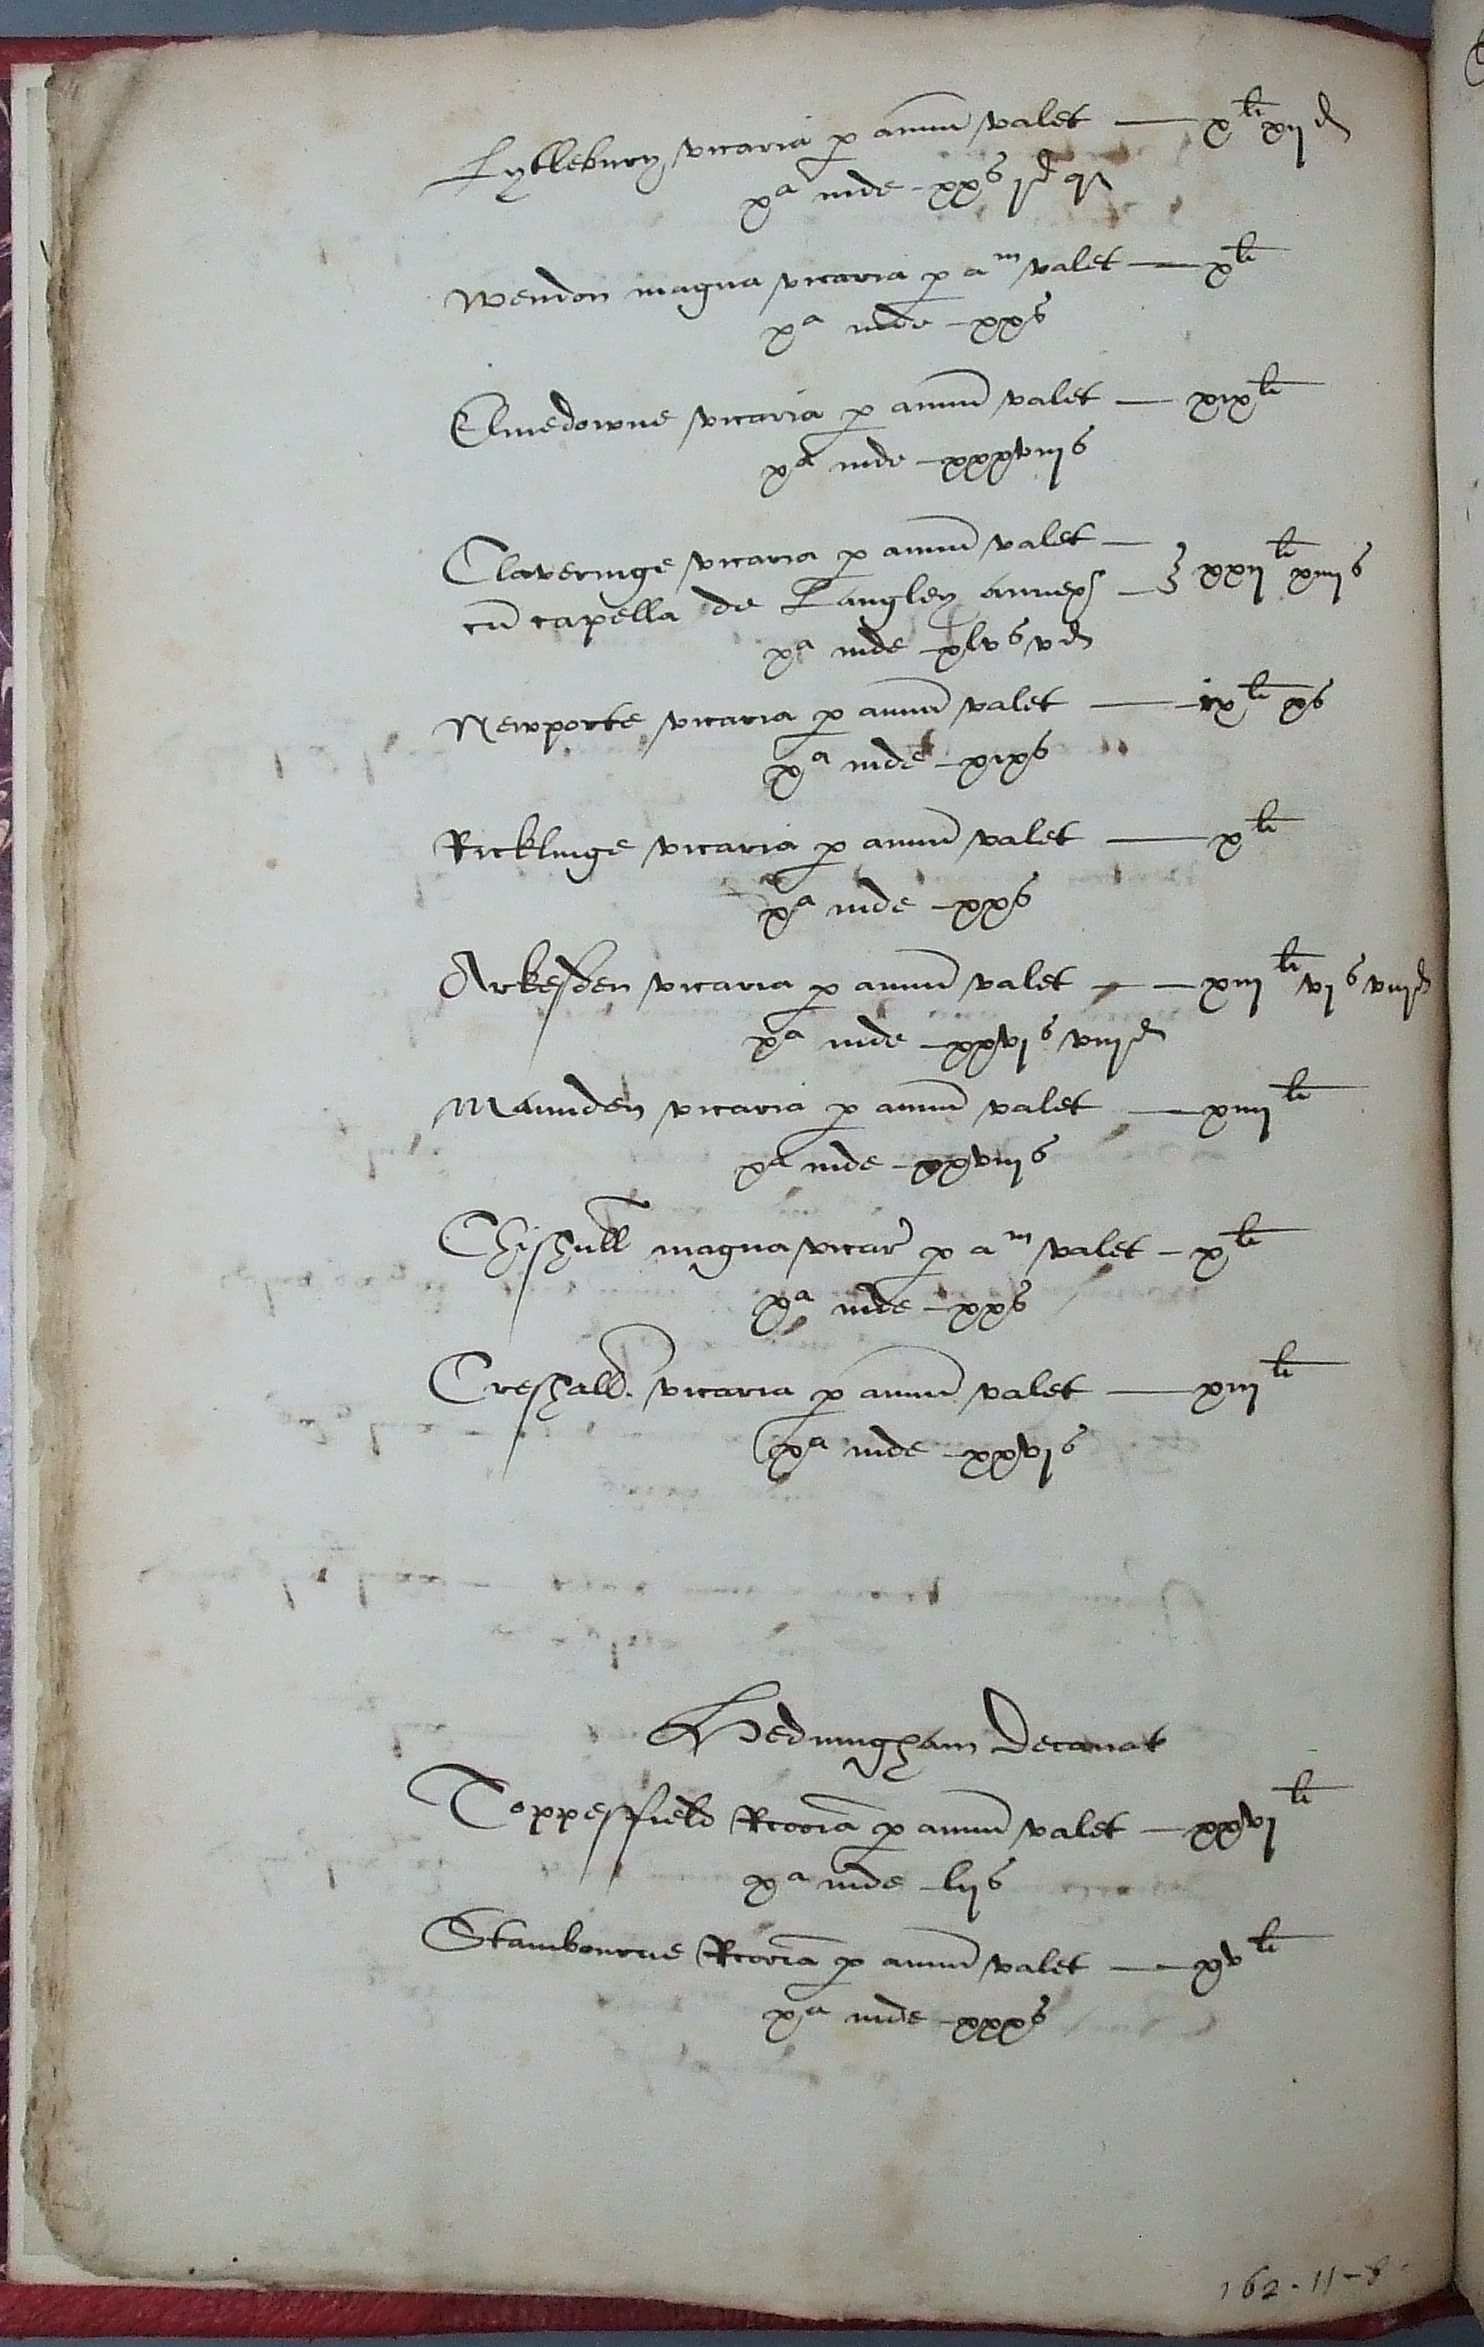 Lytlebury vicaria p annū valet — xli xijd
xa inde - xxs jd qa
Wendon magna vicaria p am valet — xli
xa inde - xxs
Elmedowne vicaria p annū valet — xixli
xa inde - xxxviijs
Claveringe vicaria p annū valet —
cū capella de Langley annex — xxijli xiiijs
xa inde - xlvs vd
Newporte vicaria p annū valet — ixli xs
xa inde - xixs
Ricklinge vicaria p annū valet — xli
xa inde - xxs
Arkesden vicaria p annū valet — xiijli vjs viijd
xa inde - xxvjs viijd
Maunden vicaria p annū valet — xiiijli
xa inde - xxviijs
Chishull magna vicar p am valet - xli
xa inde - xxs
Creshall. vicaria p annū valet — xiijli
xa inde - xxvjs
Hedningham Decanat
Toppesfield Rcoria p annū valet — xxvjli
xa inde - lijs
Stambourne Rcoria p annū valet — xvli
xa inde - xxxs
162-11-8.